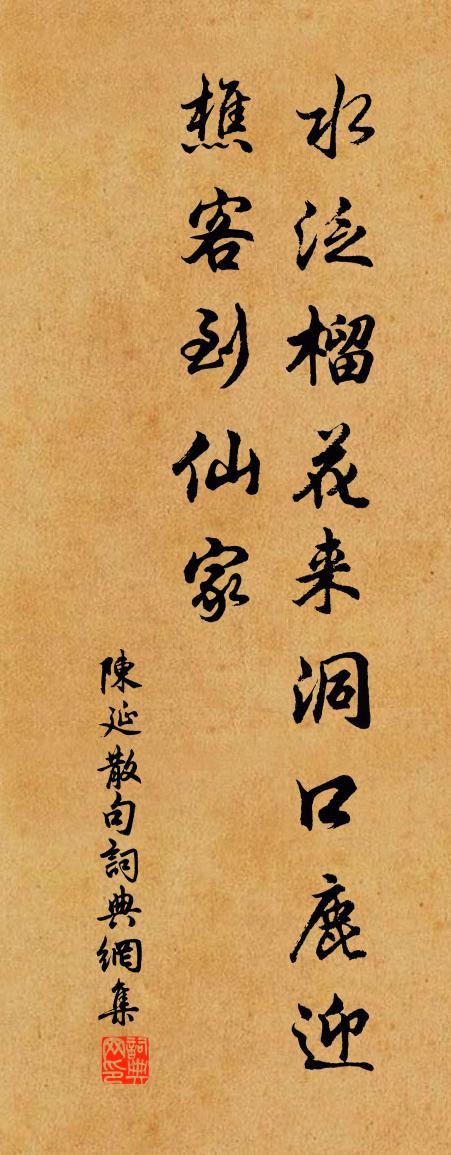 水泛榴花来洞口鹿迎
樵客到仙家
陳延散句詞典網集
詞典网印